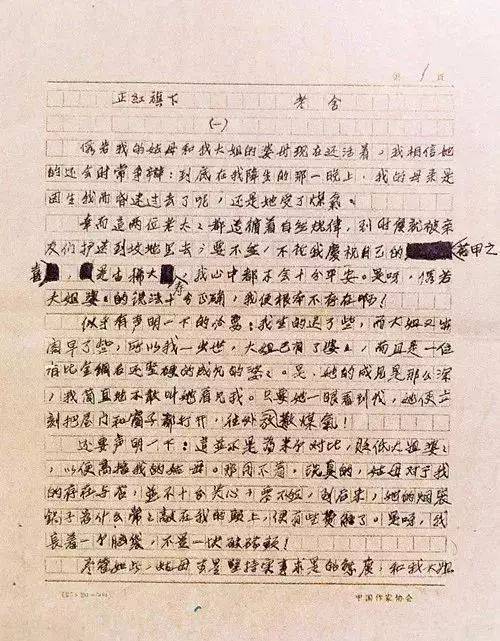 第 1 页
正红旗下 老舍
(一)
假若我的姑母和我大姐的婆母现在还活着，我相信她
们还会时常争辩：到底在我降生的那一晚上，我的母亲是
因生我而昏迷过去了呢，还是她受了煤气。
幸而这两位老太太都遵循着自然规律，到时候就被亲
友们护送到坟地里去；要不然，不论我庆祝自己的 花甲之
喜， 还是古稀大寿，我心中都不会十分平安。是呀，假若
大姐婆婆的说法十分正确，我便根本不存在啊！
似乎有声明一下的必要：我生的迟了些，而大姐又出
阁早了些，所以我一出世，大姐已有了婆婆，而且是一位
有比金钢石还坚硬的成见的婆婆。是，她的成见是那么深，
我简直地不敢叫她看见我。只要她一眼看到我，她便立
刻把屋门和窗子都打开，往外放散煤气！
还要声明一下：这并不是为来个对比，贬低大姐婆婆
，以便高抬我的姑母。那用不着。说真的，姑母对于我
的存在与否，并不十分关心；要不然，到后来，她的烟袋
锅子为什么常常敲在我的头上，便有些费解了。是呀，我
长着一个脑袋，不是一块破砖头！
尽管如此，姑母可是坚持实事求是的态度，和我大姐
中国作家协会